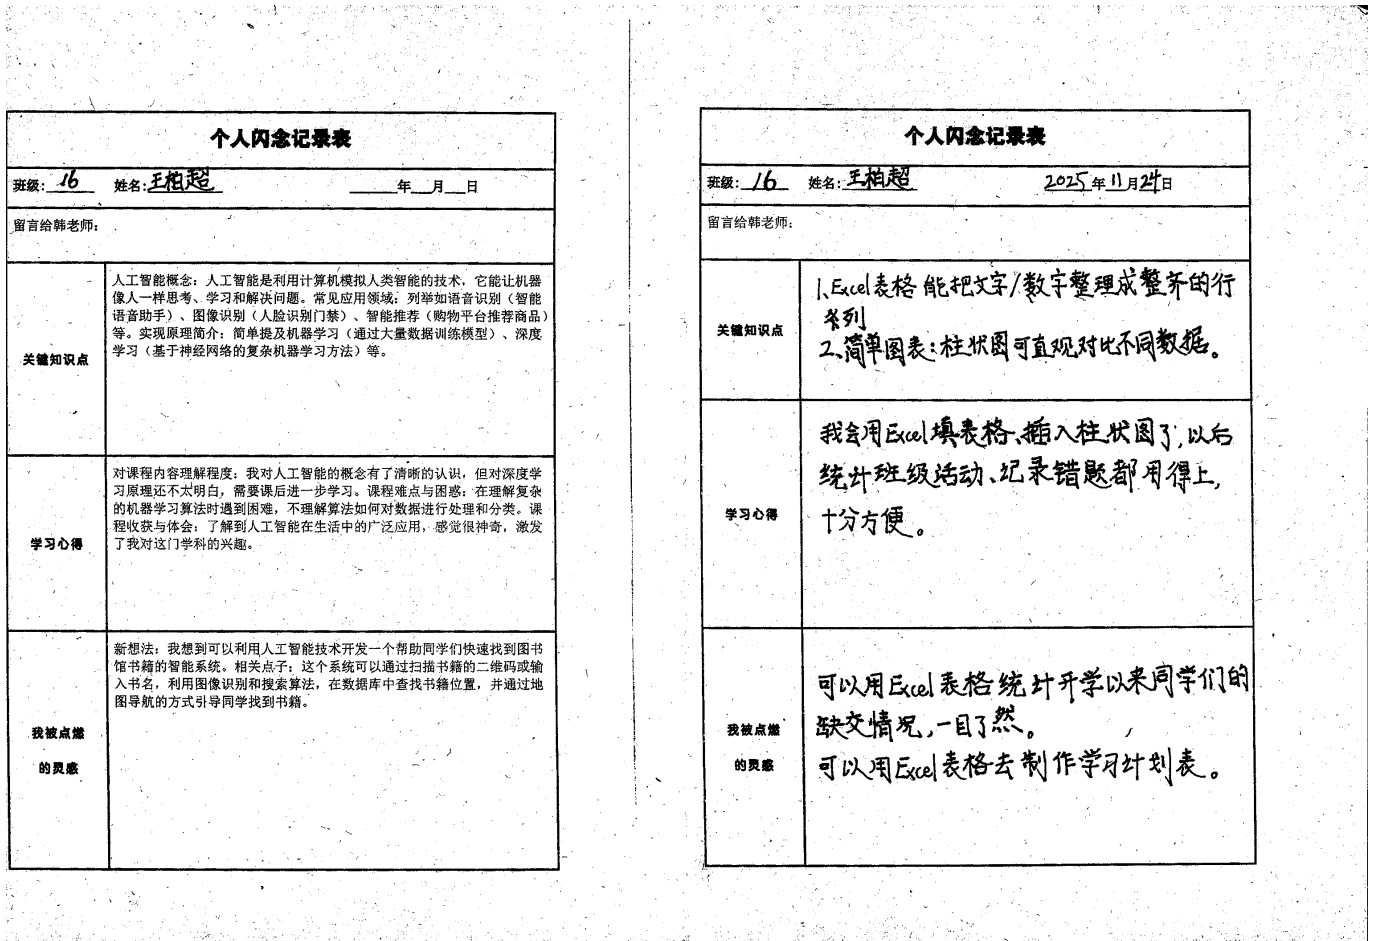 个人闪念记录表
班级: 16 姓名: 王柏超 年 月 日
留言给韩老师:
关键知识点
人工智能概念：人工智能是利用计算机模拟人类智能的技术，它能让机器
像人一样思考、学习和解决问题。常见应用领域：列举如语音识别（智能
语音助手）、图像识别（人脸识别门禁）、智能推荐（购物平台推荐商品）
等。实现原理简介：简单提及机器学习（通过大量数据训练模型）、深度
学习（基于神经网络的复杂机器学习方法）等。
学习心得
对课程内容理解程度：我对人工智能的概念有了清晰的认识，但对深度学
习原理还不太明白，需要课后进一步学习。课程难点与困惑：在理解复杂
的机器学习算法时遇到困难，不理解算法如何对数据进行处理和分类。课
程收获与体会：了解到人工智能在生活中的广泛应用，感觉很神奇，激发
了我对这门学科的兴趣。
我被点燃
的灵感
新想法：我想到可以利用人工智能技术开发一个帮助同学们快速找到图书
馆书籍的智能系统。相关点子：这个系统可以通过扫描书籍的二维码或输
入书名，利用图像识别和搜索算法，在数据库中查找书籍位置，并通过地
图导航的方式引导同学找到书籍。
个人闪念记录表
班级: 16 姓名: 王柏超 2025年11月24日
留言给韩老师:
关键知识点
1、Excel表格能把文字/数字整理成整齐的行
列
2、简单图表：柱状图可直观对比不同数据。
学习心得
我会用Excel填表格、插入柱状图了，以后
统计班级活动、记录错题都用得上，
十分方便。
我被点燃
的灵感
可以用Excel表格统计开学以来同学们的
缺交情况，一目了然。
可以用Excel表格去制作学习计划表。